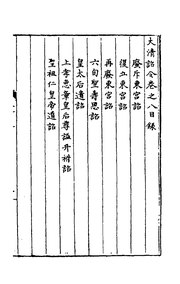 大清詔令卷之八目錄
廢斥東宮詔
復立東宮詔
再廢東宮詔
六旬聖壽恩詔
皇太后遺詔
上孝惠章皇后尊諡升祔詔
聖祖仁皇帝遺詔